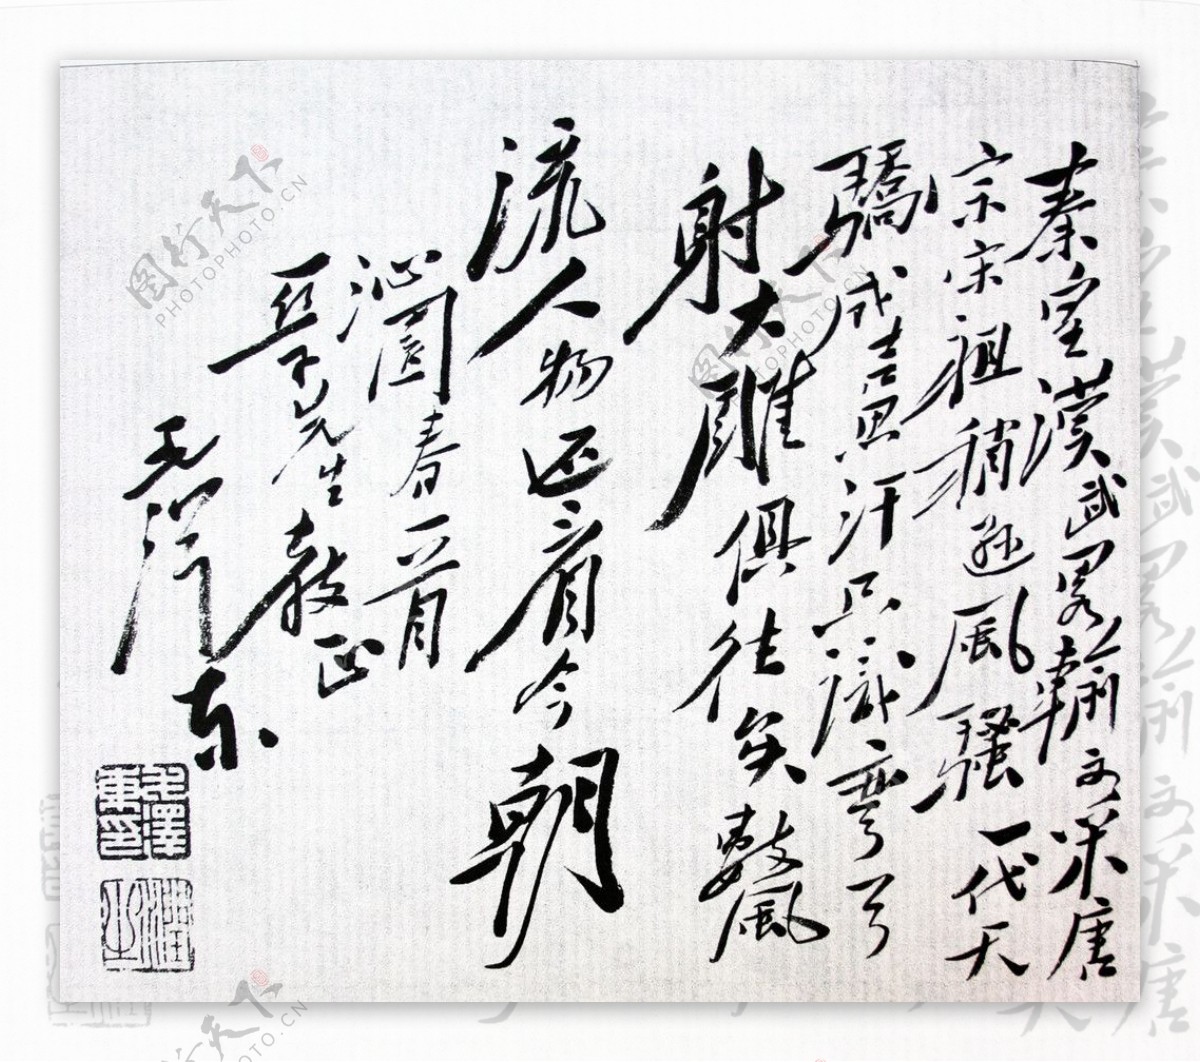 秦皇漢武略輸文采唐
宗宋祖稍遜風騷一代天
驕成吉思汗只識彎弓
射大雕俱往矣數風
流人物还看今朝
沁園春一首
亞子先生教正
毛泽东
毛澤東印
潤之
图行天下
PHOTOPHOTO.CN